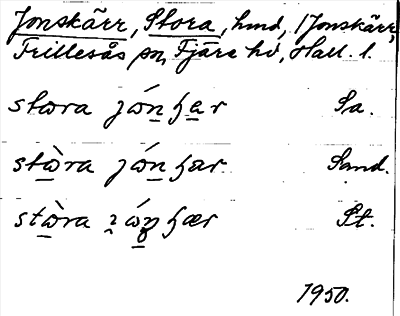 Jonskärr, Stora, hmd, i Jonskärr,
Frillesås sn, Fjäre hd, Hall. l.
stωra jón ʂar Sa.
stὼra jón ʂar Sand.
stὼra ʂær St.
1950.